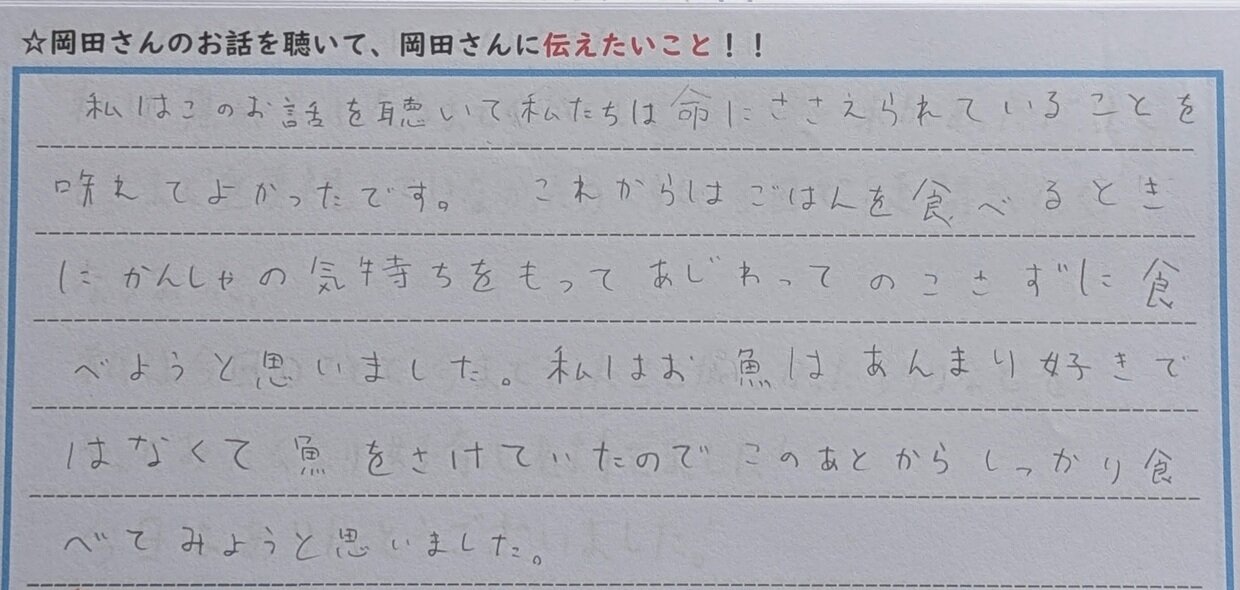 ☆岡田さんのお話を聴いて、岡田さんに伝えたいこと！！
私はこのお話を聴いて私たちは命にささえられていることを
咲れてよかったです。 これからはごはんを食べるとき
にかんしゃの気持ちをもってあじわってのこさずに食
べようと思いました。私はお魚はあんまり好きで
はなくて魚をさけていたのでこのあとからしっかり食
べてみようと思いました。